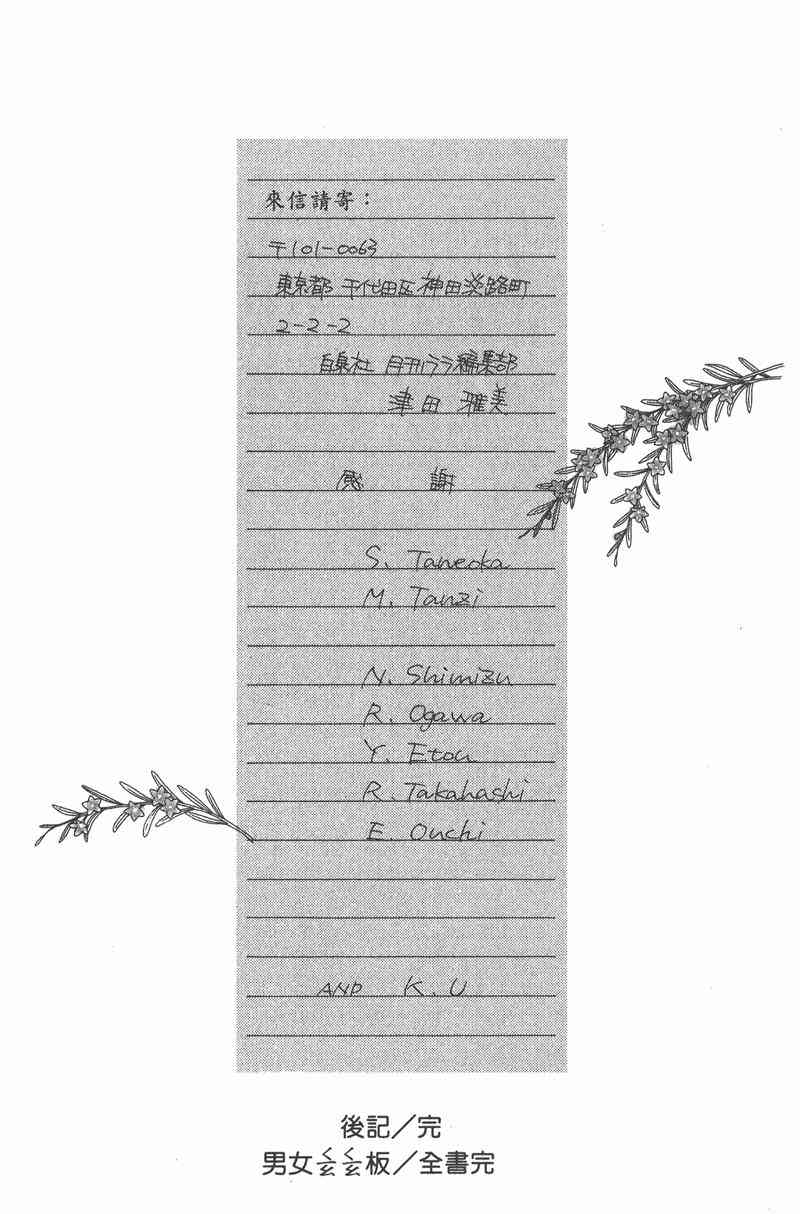 來信請寄：
〒101-0063
東京都 千代田区 神田淡路町
2-2-2
白泉社 月刊ララ編集部
津田 雅美
感 謝
S. Taneoka
M. Tanzi
N. Shimizu
R. Ogawa
Y. Etou
R. Takahashi
E. Ouchi
AND K.U
後記／完
男女ㄑㄑ板／全書完
ㄠㄠ